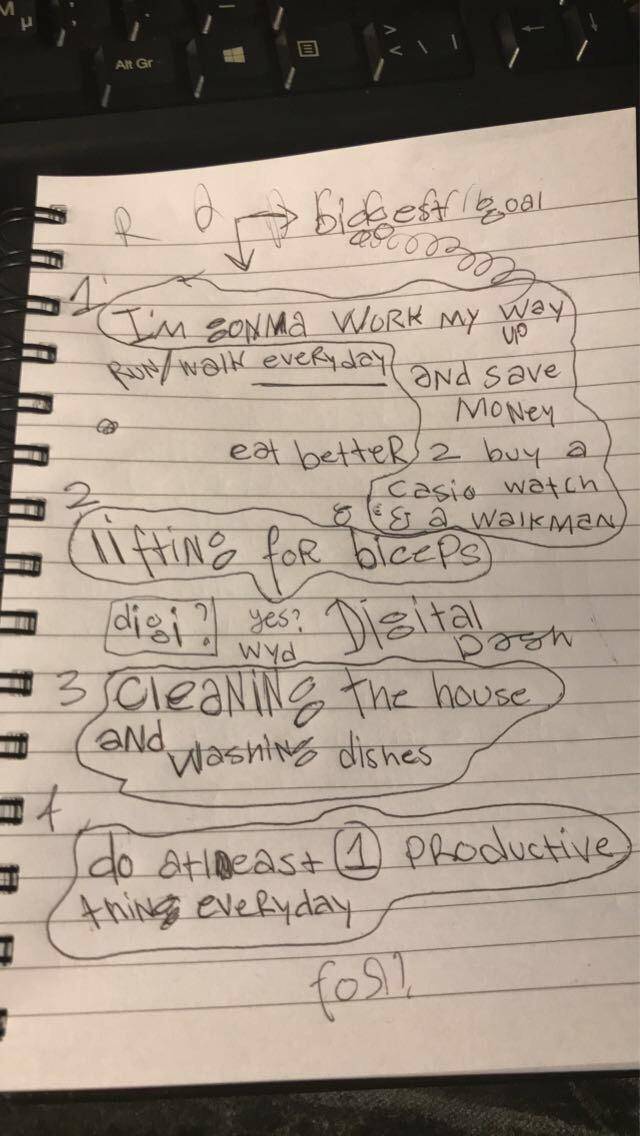 Alt Gr
R
biggest goal
1
I'M GONNA WORK MY WAY
UP
RUN/WALK everyday
AND SAVE
MONEY
eat betteR
2 buy a
casio watch
& a WALKMAN
2
lifting foR biceps
digi?
yes?
wyd
Digital
Dash
3
CLEANING the house
AND washing dishes
4
do atleast 1 PRODUCTIVE
thing eveRyday